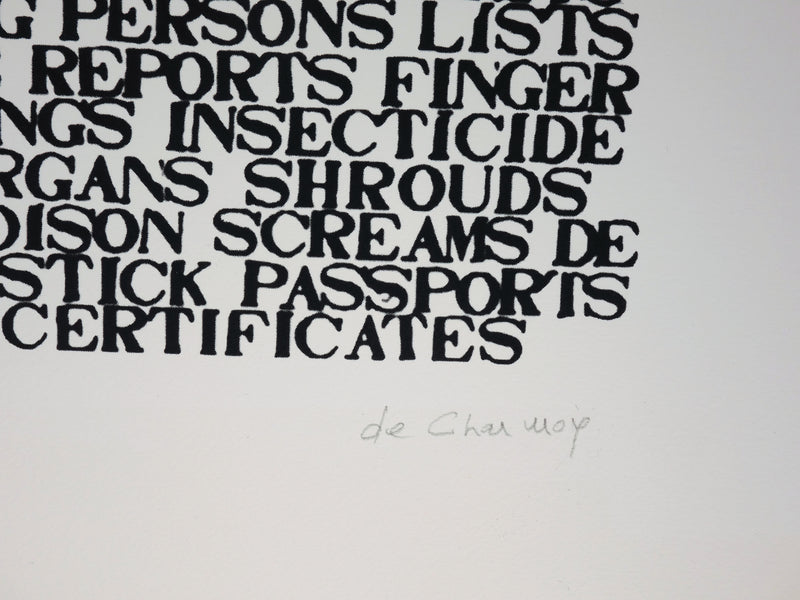 G PERSONS LISTS
REPORTS FINGER
NGS INSECTICIDE
RGANS SHROUDS
OISON SCREAMS DE
STICK PASSPORTS
CERTIFICATES
de Charmoy